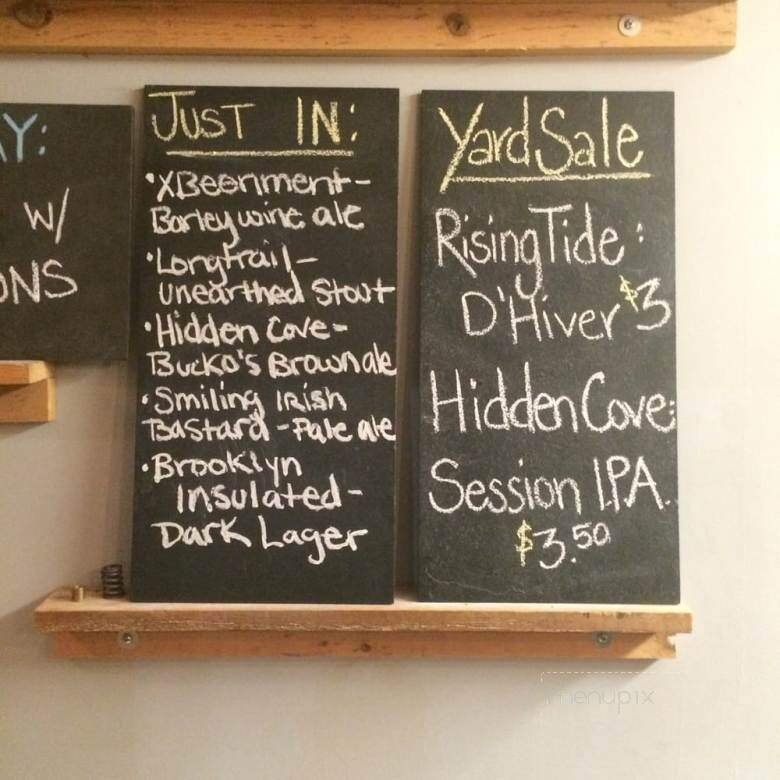 Y:
W/
ONS
JUST IN:
•XBeeriment-
Barleywine ale
•Longtrail-
unearthed Stout
•Hidden Cove-
Bucko's Brown ale
•Smiling IRish
Bastard-Pale ale
•Brooklyn
Insulated-
Dark Lager
Yard Sale
Rising Tide:
D'Hiver $3
Hidden Cove:
Session I.P.A.
$3.50
menupix